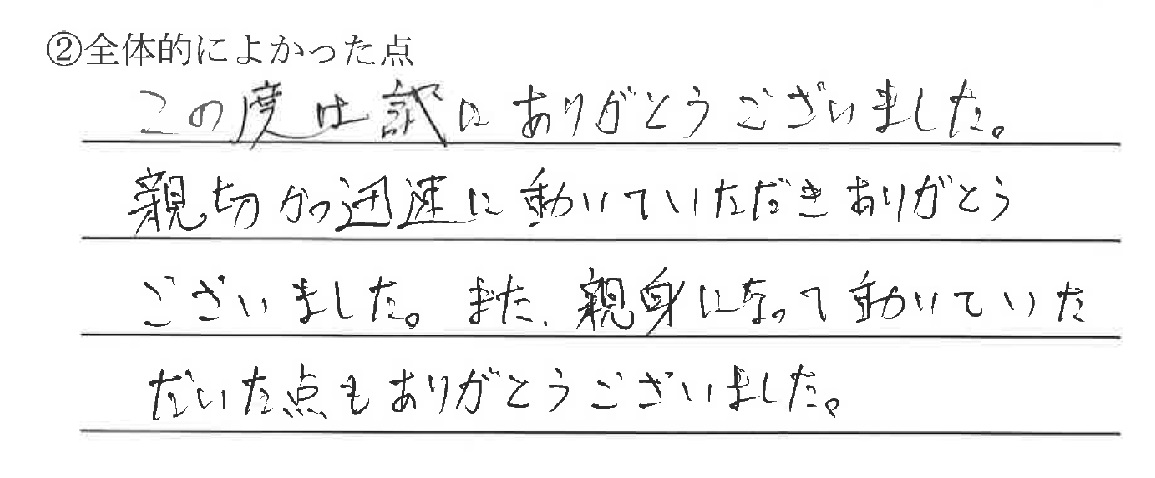 ②全体的によかった点
この度は誠にありがとうございました。
親切かつ迅速に動いていただきありがとう
ございました。また、親身になって動いていた
だいた点もありがとうございました。